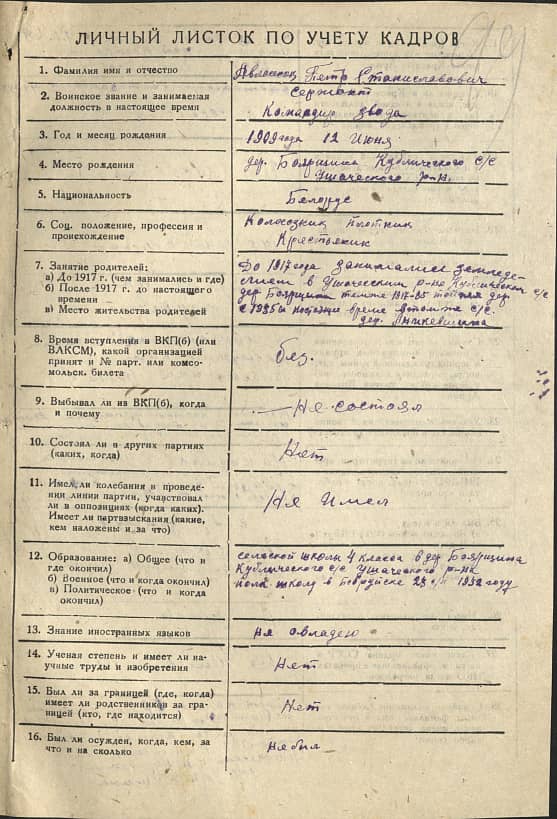 ЛИЧНЫЙ ЛИСТОК ПО УЧЕТУ КАДРОВ
1. Фамилия имя и отчество
Петр Станиславович
2. Воинское звание и занимаемая
должность в настоящее время
Сержант
Командир звода
3. Год и месяц рождения
1909 года 12 Июня
4. Место рождения
дер. Боярщина Кублического с/с
Ушаческого р-на
5. Национальность
Белорус
6. Соц. положение, профессия и
происхождение
Колхозник плотник
Крестьянин
7. Занятие родителей:
а) До 1917 г. (чем занимались и где)
б) После 1917 г. до настоящего
времени
в) Место жительства родителей
До 1917 года занимались землede-
лием в Ушаческим р-не Кублический с/с
дер Боярщина тоже 1917-35 дер.
с 1935 настоящие время с/с.
дер.
8. Время вступления в ВКП(б) (или
ВЛКСМ), какой организацией
принят и № парт. или комсо-
мольск. билета
без.
9. Выбывал ли из ВКП(б), когда
и почему
Не состоял
10. Состоял ли в других партиях
(каких, когда)
Нет
11. Имел ли колебания в проведе-
нии линии партии, участвовал
ли в оппозициях (когда каких).
Имеет ли партвзыскания (какие,
кем наложены и за что)
Ня Имел
12. Образование: а) Общее (что и
где окончил)
б) Военное (что и когда окончил)
в) Политическое (что и когда
окончил)
сельской школы 4 класса в дер Боярщина
Кублического с/с Ушаческого р-на
школу в 1932 году
13. Знание иностранных языков
ня овладею
14. Ученая степень и имеет ли на-
учные труды и изобретения
Нет
15. Был ли за границей (где, когда)
имеет ли родственников за гра-
ницей (кто, где находится)
Нет
16. Был ли осужден, когда, кем, за
что и на сколько
ня был